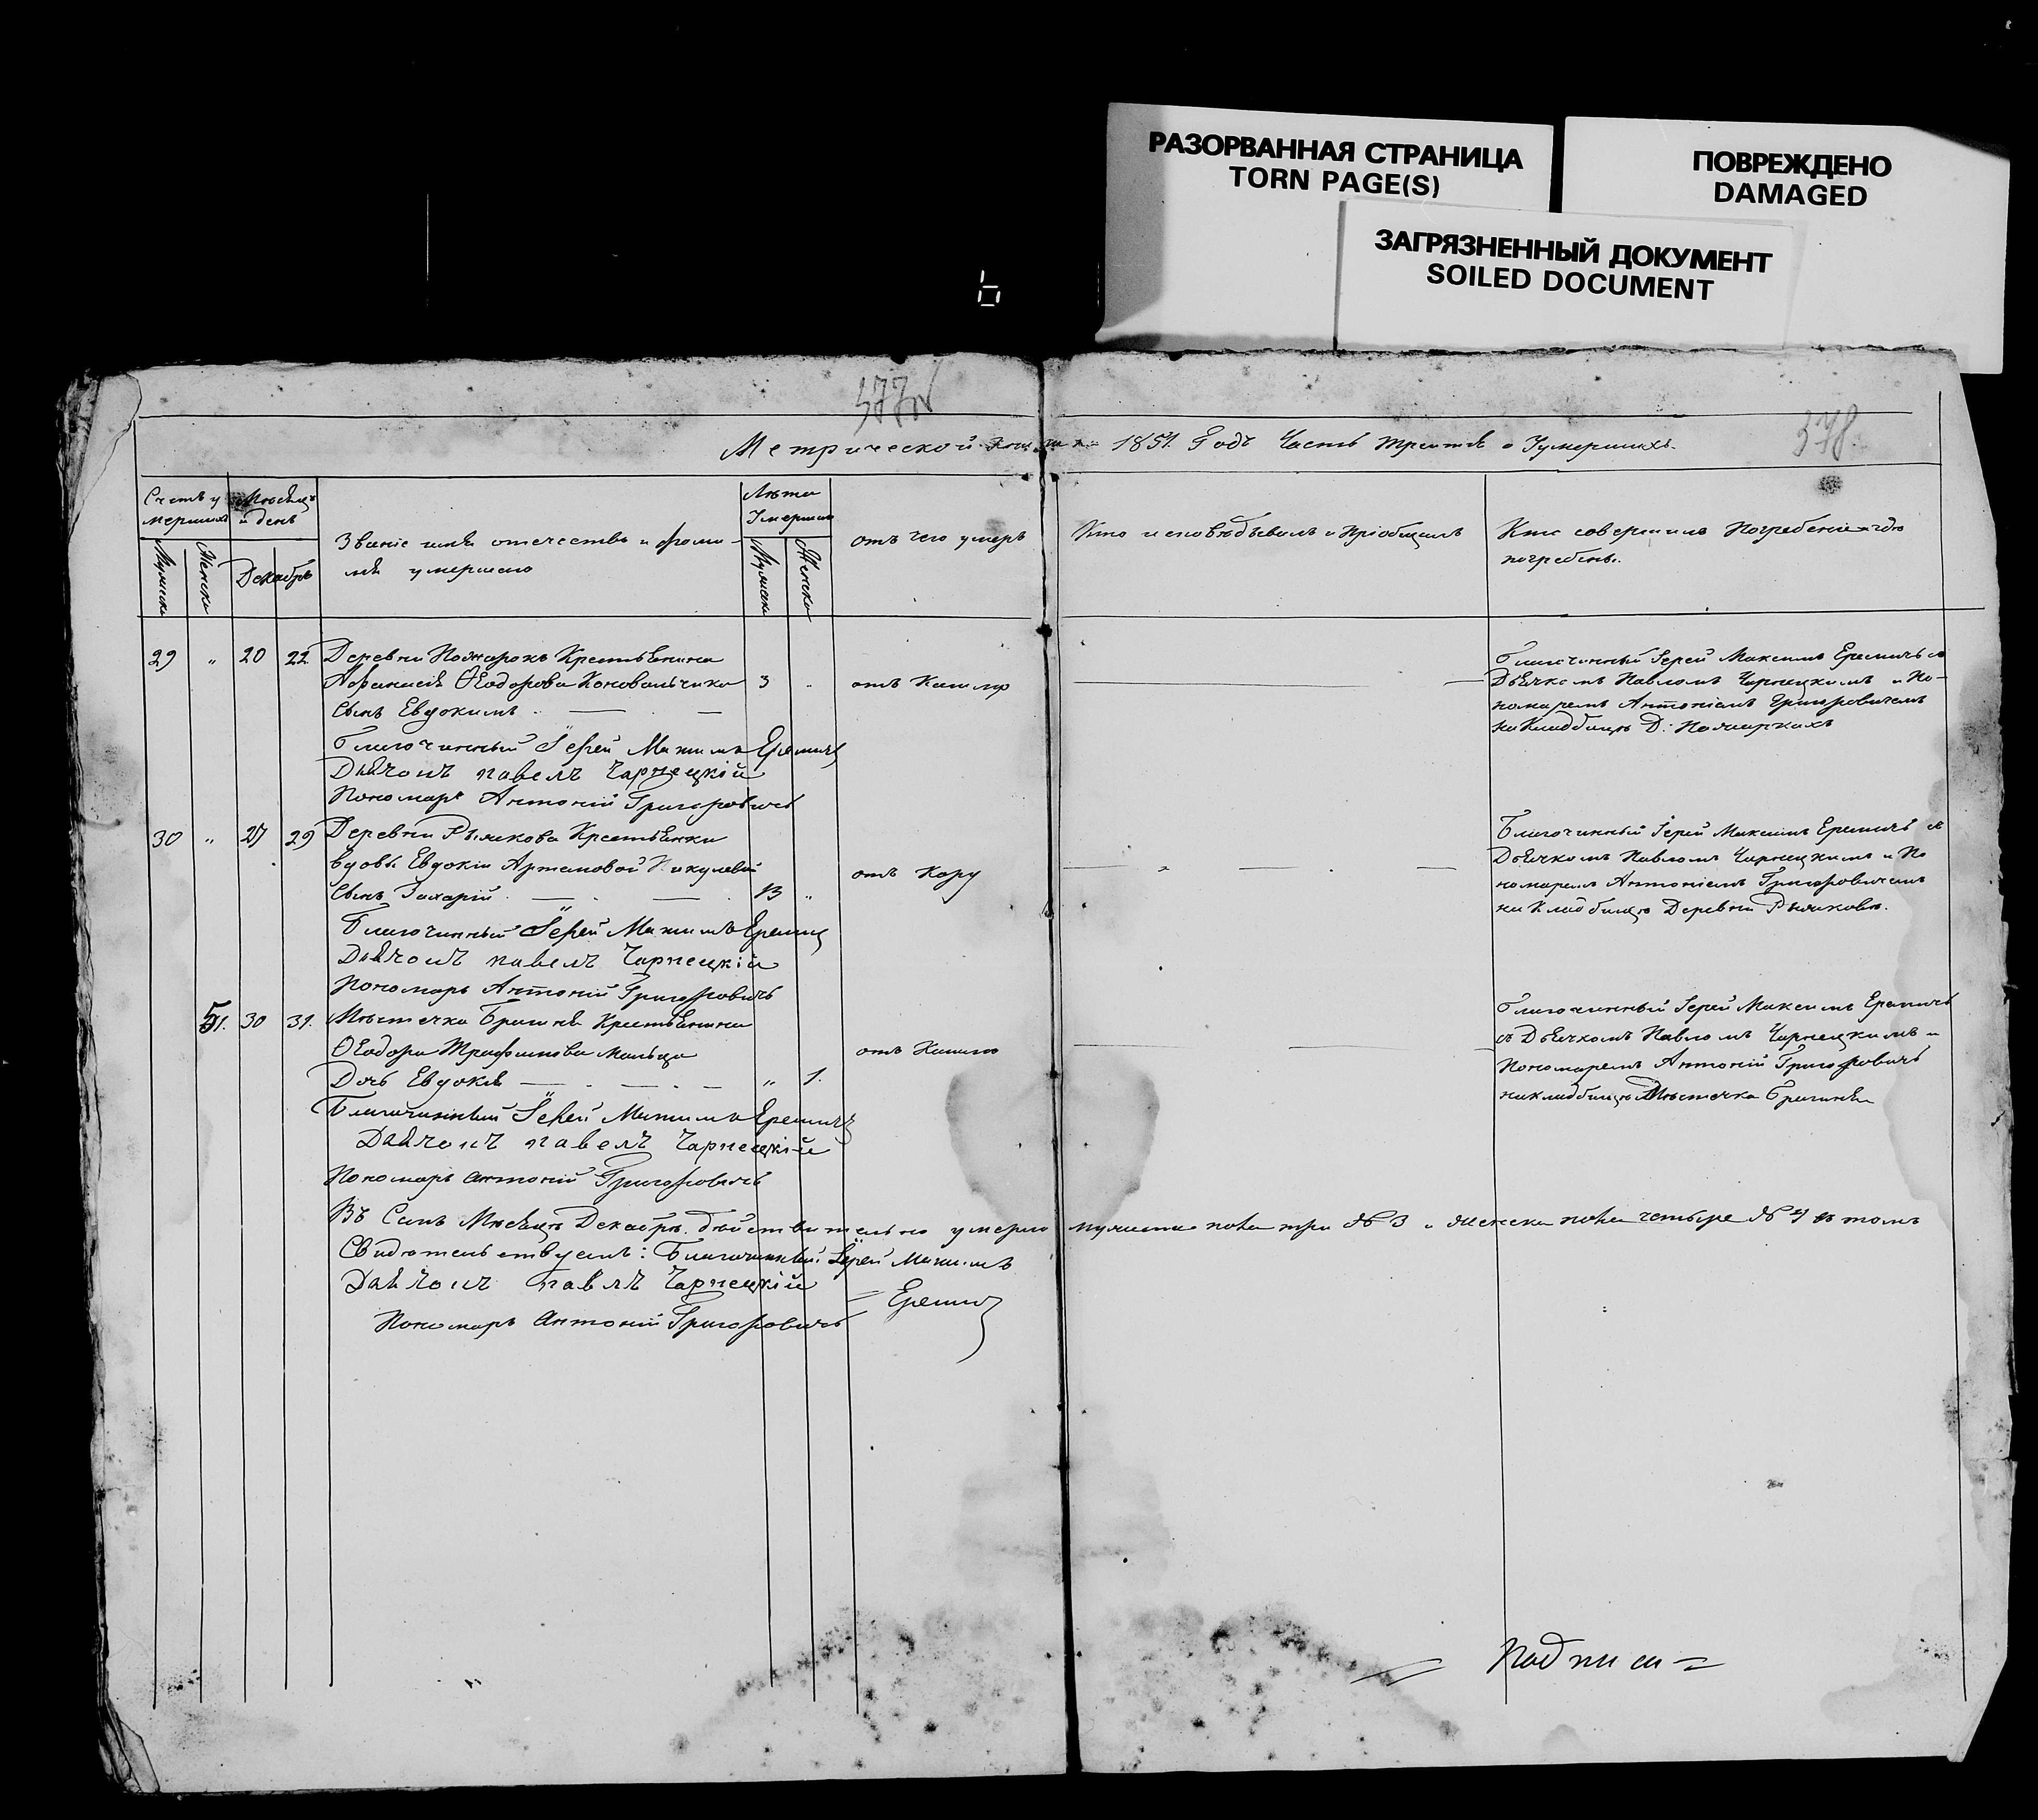 РАЗОРВАННАЯ СТРАНИЦА
TORN PAGE(S)
ПОВРЕЖДЕНО
DAMAGED
ЗАГРЯЗНЕННЫЙ ДОКУМЕНТ
SOILED DOCUMENT
377
378.
Метрической 1851. Годъ Часть третія о Умершихъ.
Счетъ у
мершихъ
Мѣсяцъ
и день
Званіе имя отечество и фами-
лія умершаго
Лѣта
Умершаго
отъ чего умеръ
Кто исповѣдывалъ и пріобщалъ
Кто совершилъ Погребеніе и гдѣ
погребены.
Мужеска
Женска
Декабрь
Мужеска
Женска
29 " 20 22 Деревни Пожарокъ Крестьянина
Афанасія Ѳеодорова Коновальчика 3 " отъ Кашлю
Сынъ Евдокимъ
Благочинный Іерей Максимъ Еремичъ съ
Дьячкомъ Павломъ Чарнецкимъ и По-
номаремъ Антоніемъ Григоровичемъ
на Кладбищѣ Д: Пожаркахъ
Благочинный Іерей Максимъ Еремичъ
Дьячокъ павелъ Чарнецкій
Пономарь Антоній Григоровичъ
30 " 27 29 Деревни Рыжкова Крестьянки
вдовы Евдокіи Артемовой
Сынъ Захарій 13 " отъ Кору
Благочинный Іерей Максимъ Еремичъ съ
Дьячкомъ Павломъ Чарнецкимъ и По
номаремъ Антоніемъ Григоровичемъ
на Кладбищѣ Деревни Рыжковѣ.
Благочинный Іерей Максимъ Еремичъ
Дьячокъ павелъ Чарнецкій
Пономарь Антоній Григоровичъ
51. 30 31. Мѣстечка Брагиня Крестьянина
Ѳеодора Трофимова Мальца отъ Кашлю
Дочь Евдокія " 1.
Благочинный Іерей Максимъ Еремичъ
съ Дьячкомъ Павломъ Чарнецкимъ и
Пономаремъ Антоній Григоровичъ
на кладбищѣ Мѣстечка Брагиня
Благочинный Іерей Максимъ Еремичъ
Дьячокъ павелъ Чарнецкій
Пономарь Антоній Григоровичъ
Въ Семъ Мѣсяцѣ Декабрѣ дѣйствительно умерло мужеска пола три № 3 и женска пола четыре № 4 въ томъ
Свидѣтельствуемъ: Благочинный Іерей Максимъ
Еремичъ
Дьячокъ павлъ Чарнецкій
Пономарь Антоній Григоровичъ
Подписи